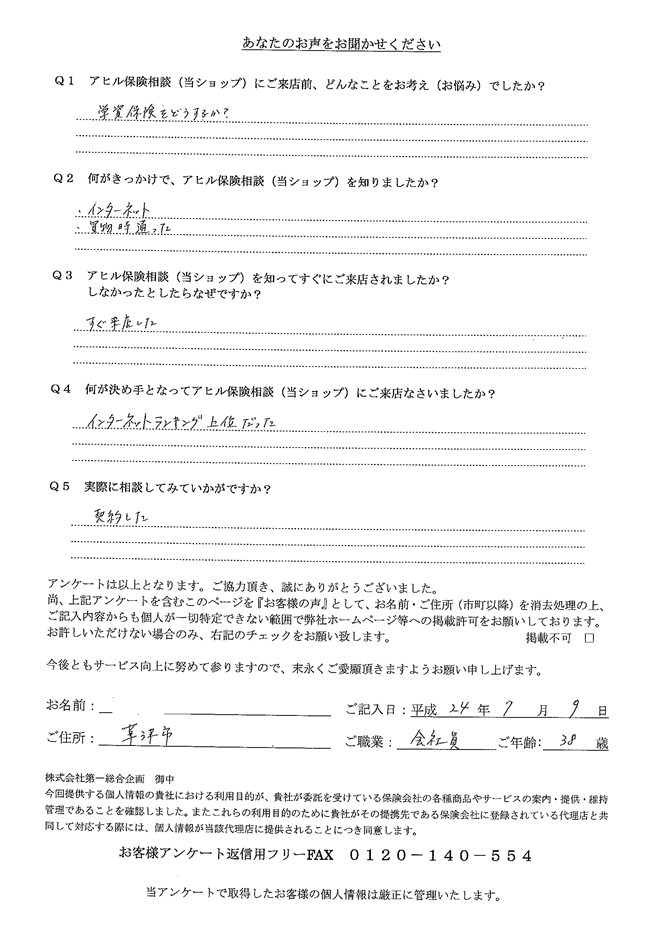 あなたのお声をお聞かせください
Q1 アヒル保険相談(当ショップ)にご来店前、どんなことをお考え(お悩み)でしたか?
学資保険をどうするか?
Q2 何がきっかけで、アヒル保険相談(当ショップ)を知りましたか?
・インターネット
・買物時通った
Q3 アヒル保険相談(当ショップ)を知ってすぐにご来店されましたか?
しなかったとしたらなぜですか?
すぐ来店した
Q4 何が決め手となってアヒル保険相談(当ショップ)にご来店なさいましたか?
インターネットランキング上位だった
Q5 実際に相談してみていかがですか?
契約した
アンケートは以上となります。ご協力頂き、誠にありがとうございました。
尚、上記アンケートを含むこのページを『お客様の声』として、お名前・ご住所(市町以降)を消去処理の上、
ご記入内容からも個人が一切特定できない範囲で弊社ホームページ等への掲載許可をお願いしております。
お許しいただけない場合のみ、右記のチェックをお願い致します。 掲載不可 □
今後ともサービス向上に努めて参りますので、末永くご愛願頂きますようお願い申し上げます。
お名前: ご記入日:平成 24 年 7 月 9 日
ご住所: 草津市 ご職業: 会社員 ご年齢: 38 歳
株式会社第一総合企画 御中
今回提供する個人情報の貴社における利用目的が、貴社が委託を受けている保険会社の各種商品やサービスの案内・提供・維持
管理であることを確認しました。またこれらの利用目的のために貴社がその提携先である保険会社に登録されている代理店と共
同して対応する際には、個人情報が当該代理店に提供されることにつき同意します。
お客様アンケート返信用フリーFAX 0120-140-554
当アンケートで取得したお客様の個人情報は厳正に管理いたします。